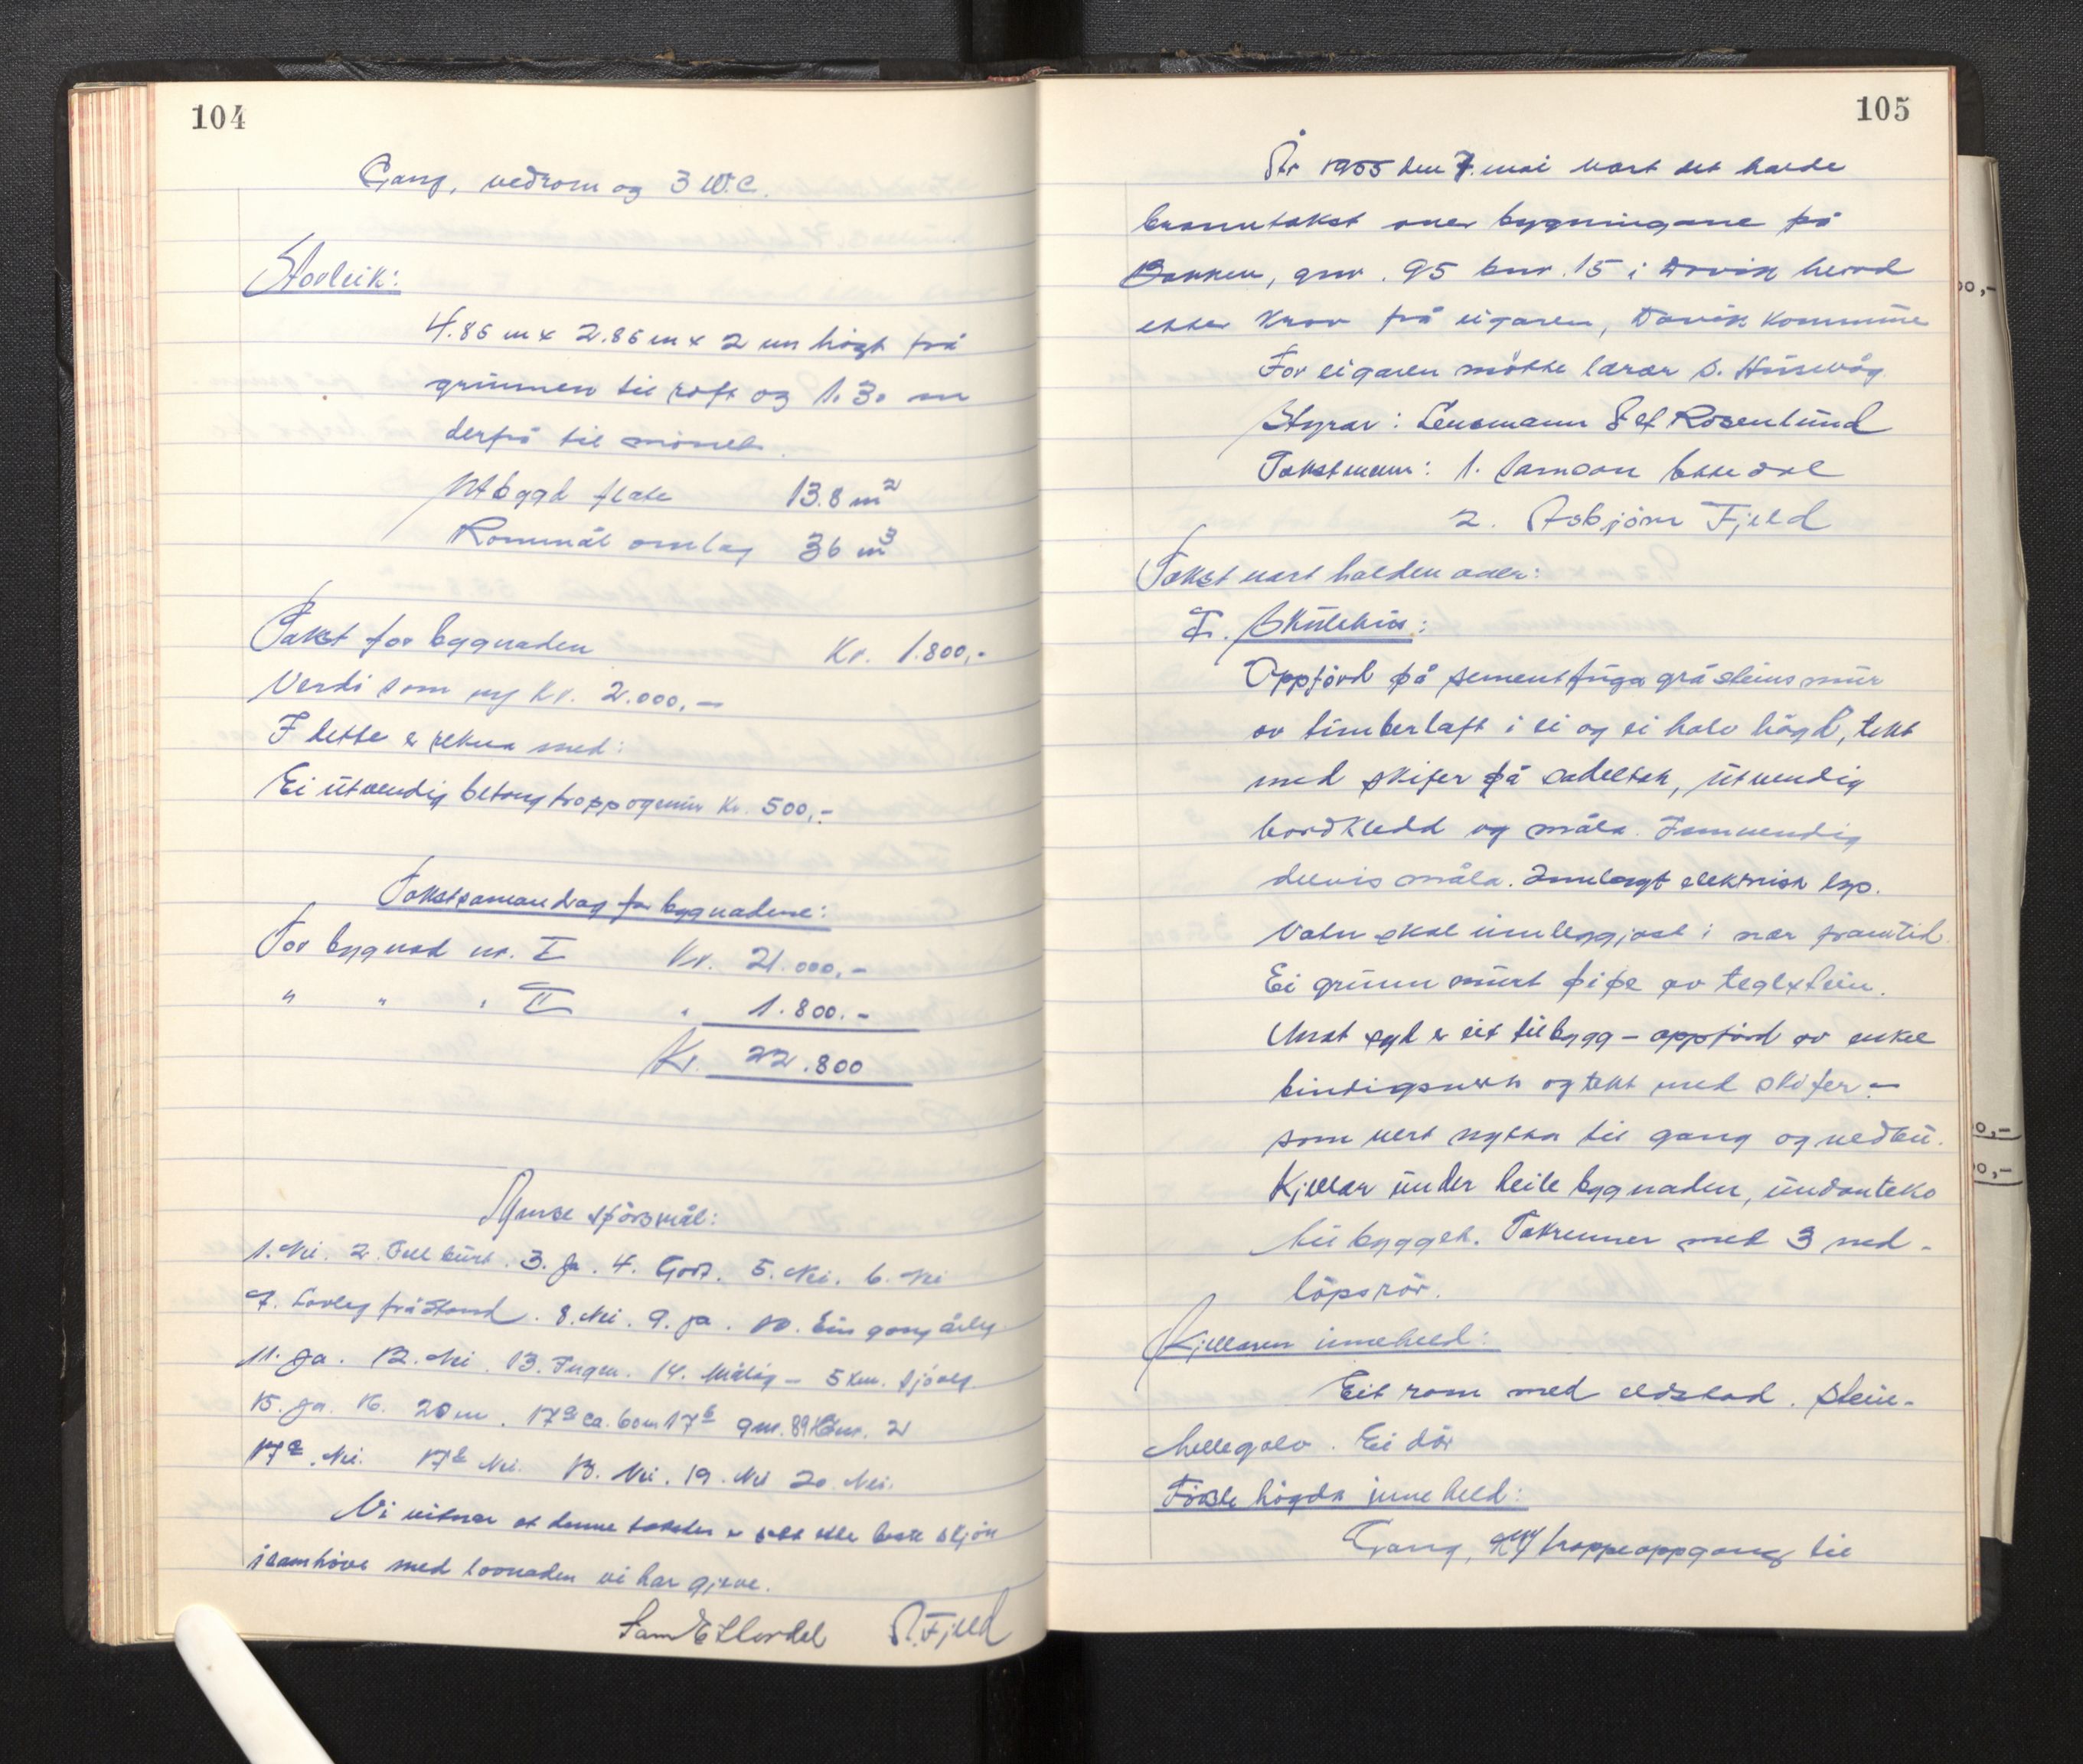 104
Gang, vedrom og 3 W.C.
Storleik:
4.86 m x 2.86 m x 2 m högt frå
grunnen til röft og 1.30 m
derfrå til mönet.
Utbygd flate 13.8 m²
Rommål omlag 36 m³
Takst for bygnaden Kr. 1.800,-
Verdi som ny kr. 2.000,-
I dette er rekna med:
Ei utvendig betongtrapp og mur kr. 500,-
Takstsamandrag for bygnadene:
For bygnad nr. I Kr. 21.000,-
" " " II " 1.800.-
Kr. 22.800
Ymse spörsmål:
1. Nei. 2. Fell burt. 3. Ja. 4. God. 5. Nei. 6. Nei
7. Lovleg fråstand. 8. Nei. 9. Ja. 10. Ein gong årleg
11. Ja. 12. Nei. 13. Ingen. 14. Måløy - 5 km. sjöveg.
15. Ja. 16. 20 m. 17a ca. 60 m 17b gnr. 89 bnr. 2
17a. Nei. 17b Nei. 18. Nei. 19. Nei 20. Nei.
Vi vitnar at denne taksten er sett etter beste skjön
i samhöve med lovnaden vi har gjeve.
Sam Ettordal A. Fjeld
105
År 1955 den 7. mai vart det halde
branntakst over bygningane på
Bakken, gnr. 95 bnr. 15 i Davik herad
etter krav frå eigaren, Davik kommune
For eigaren møtte lærar S. Husevåg
Styrar: Lensmann Rosenlund
Takstmenn: 1. Samson
2. Asbjörn Fjeld
Takst vart halden over:
I. Skulehus:
Oppförd på sementfuga gråsteinsmur
av timberlaft i ei og ei halv högd, tekt
med skifer på sadeltak, utvendig
bordkledd og måla. Innvendig
delvis måla. Innlagt elektrisk lys.
Vatn skal innleggjast i nær framtid.
Ei grunnmurt pipe av teglstein.
Mot syd er eit tilbygg - oppförd av enkel
bindigsverk og tekt med skifer -
som vert nytta til gang og vedbu.
Kjellar under heile bygnaden, undanteke
tilbygget. Takrenner med 3 ned-
löpsrör.
Kjellaren inneheld:
Eit rom med eldstad. Stein-
hellegolv. Ei dör
Fösle högda inneheld:
Gang, trappeoppgang til